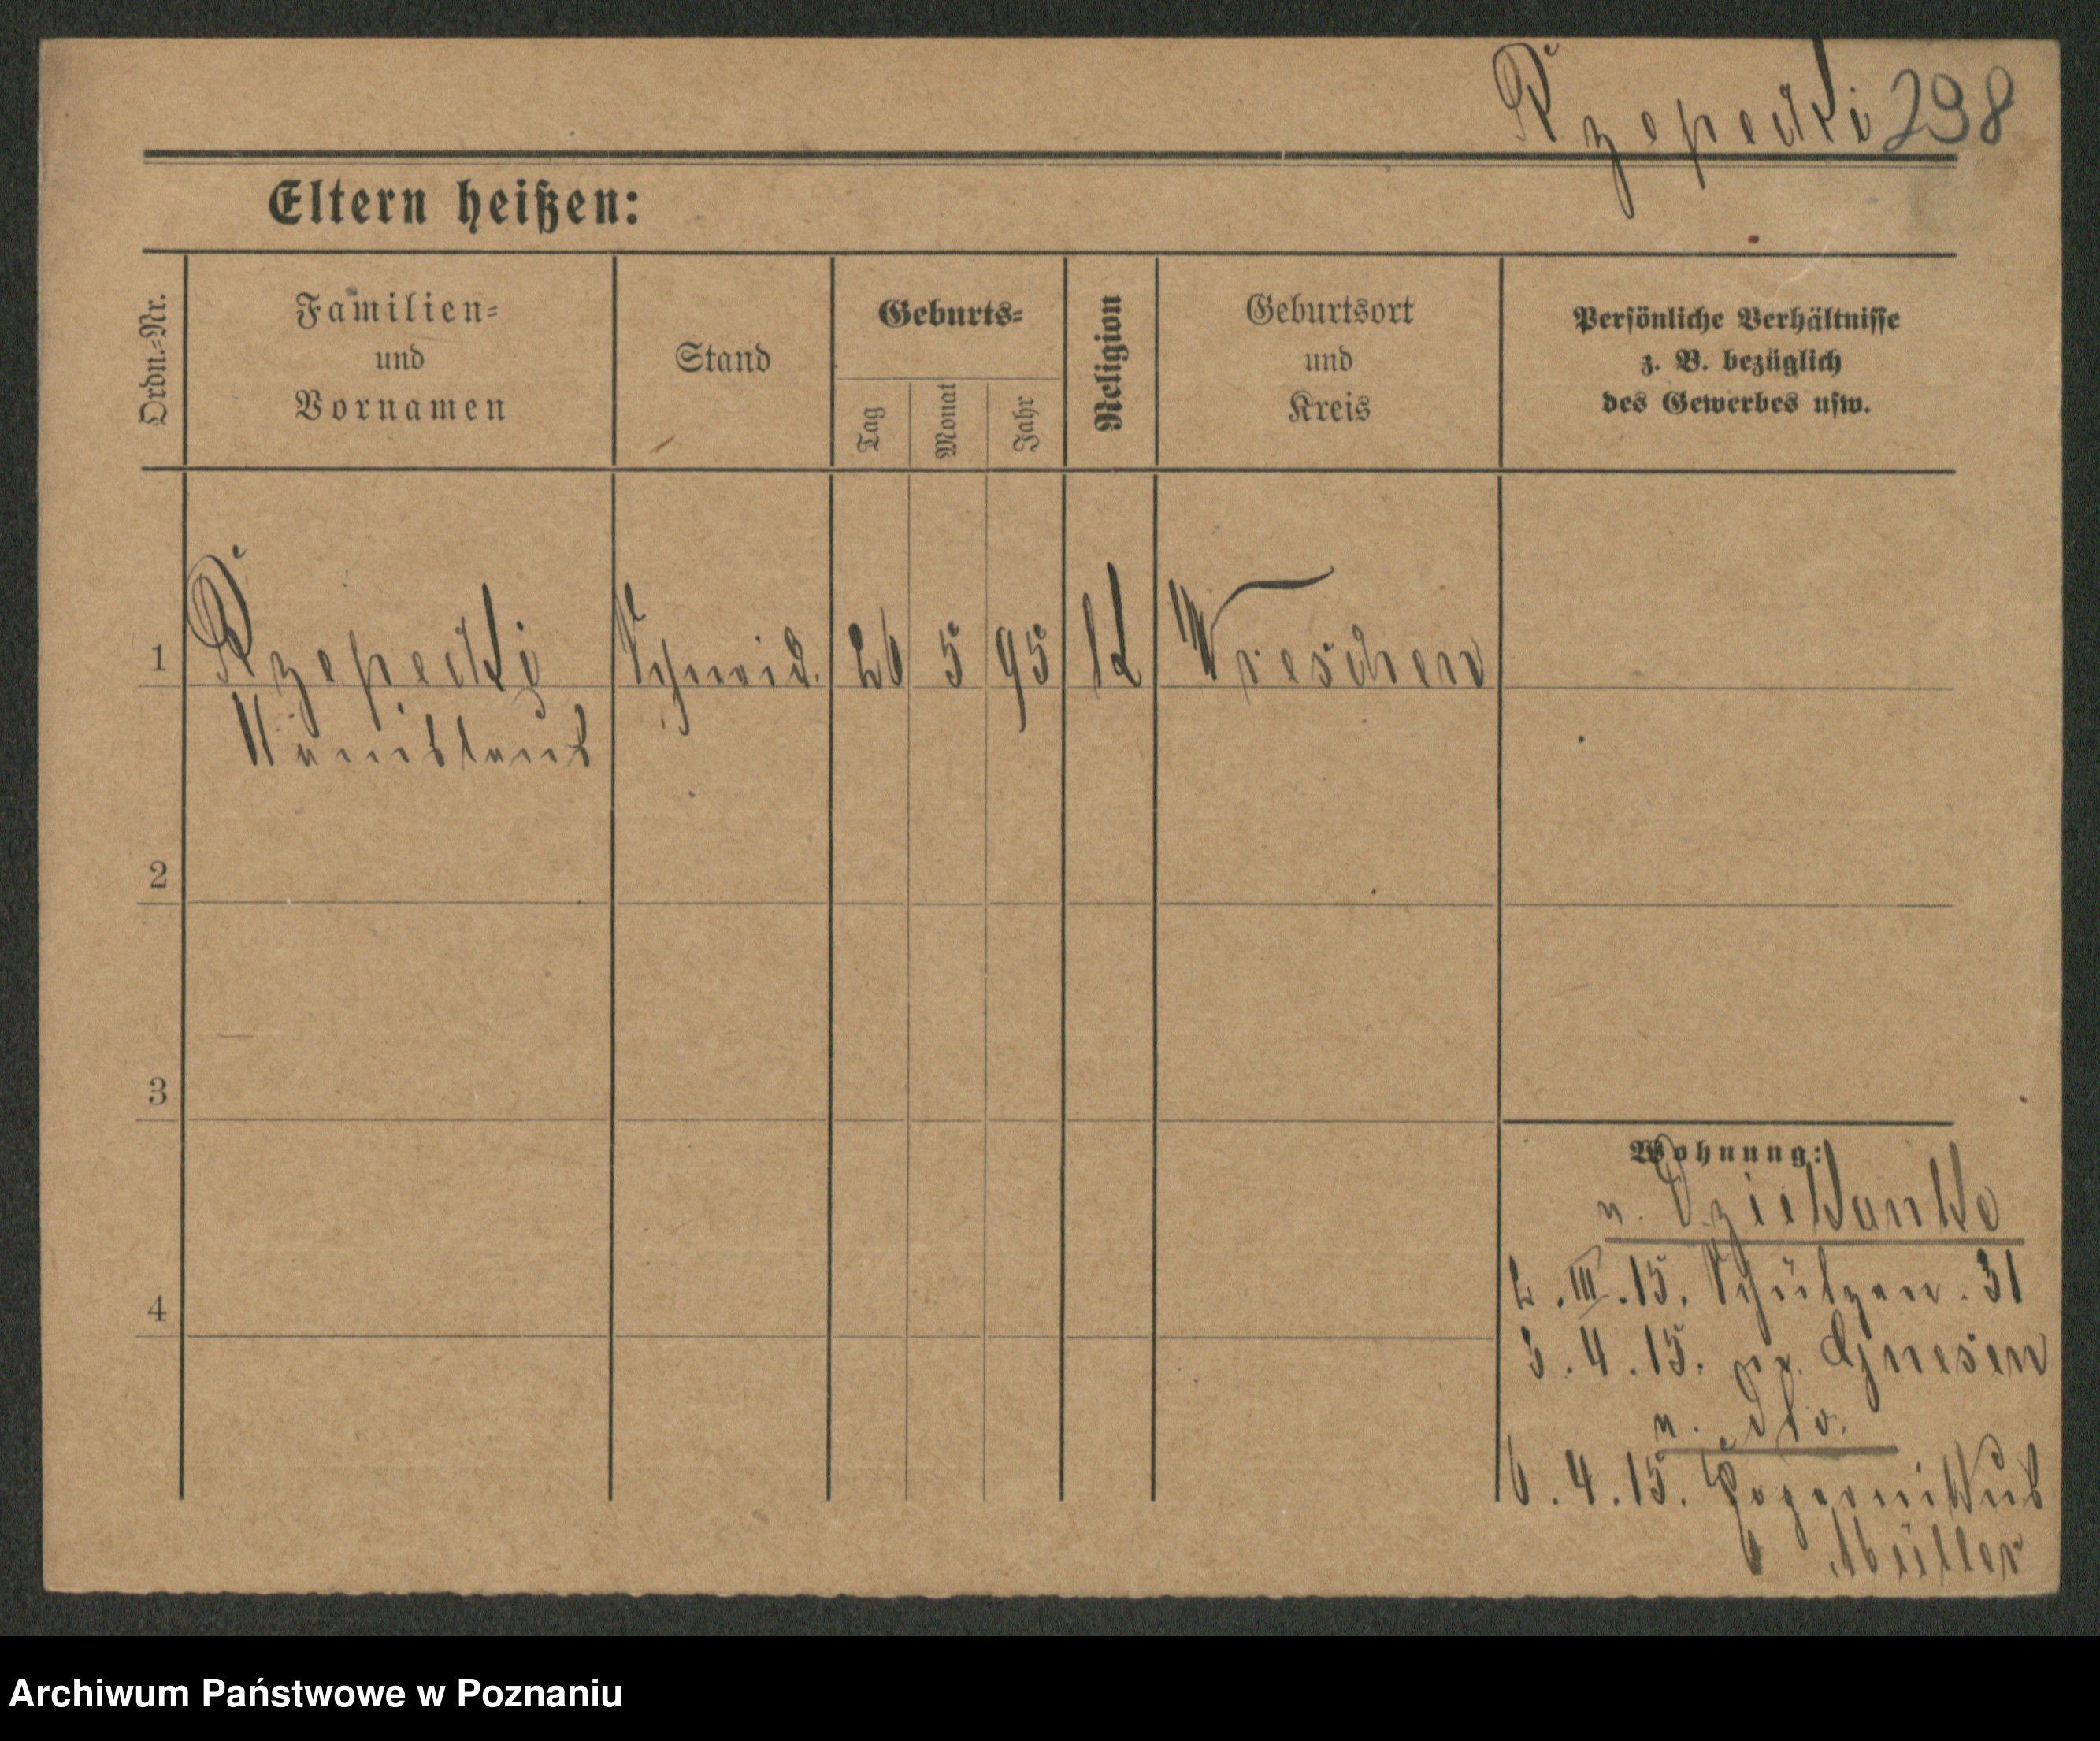 Rzepecki 298
Eltern heißen:
Ordn.-Nr.
Familien-
und
Vornamen
Stand
Geburts-
Tag
Monat
Jahr
Religion
Geburtsort
und
Kreis
Persönliche Verhältnisse
z. B. bezüglich
des Gewerbes usw.
1 Rzepecki Schneid. 26 5 95 Wreschen
2
3
4
Wohnung:
n. Dziekanka
2. III. 15. Schützen. 31
3. 4. 15. Gnesen
n.
6. 4. 15.
Müller
Archiwum Państwowe w Poznaniu